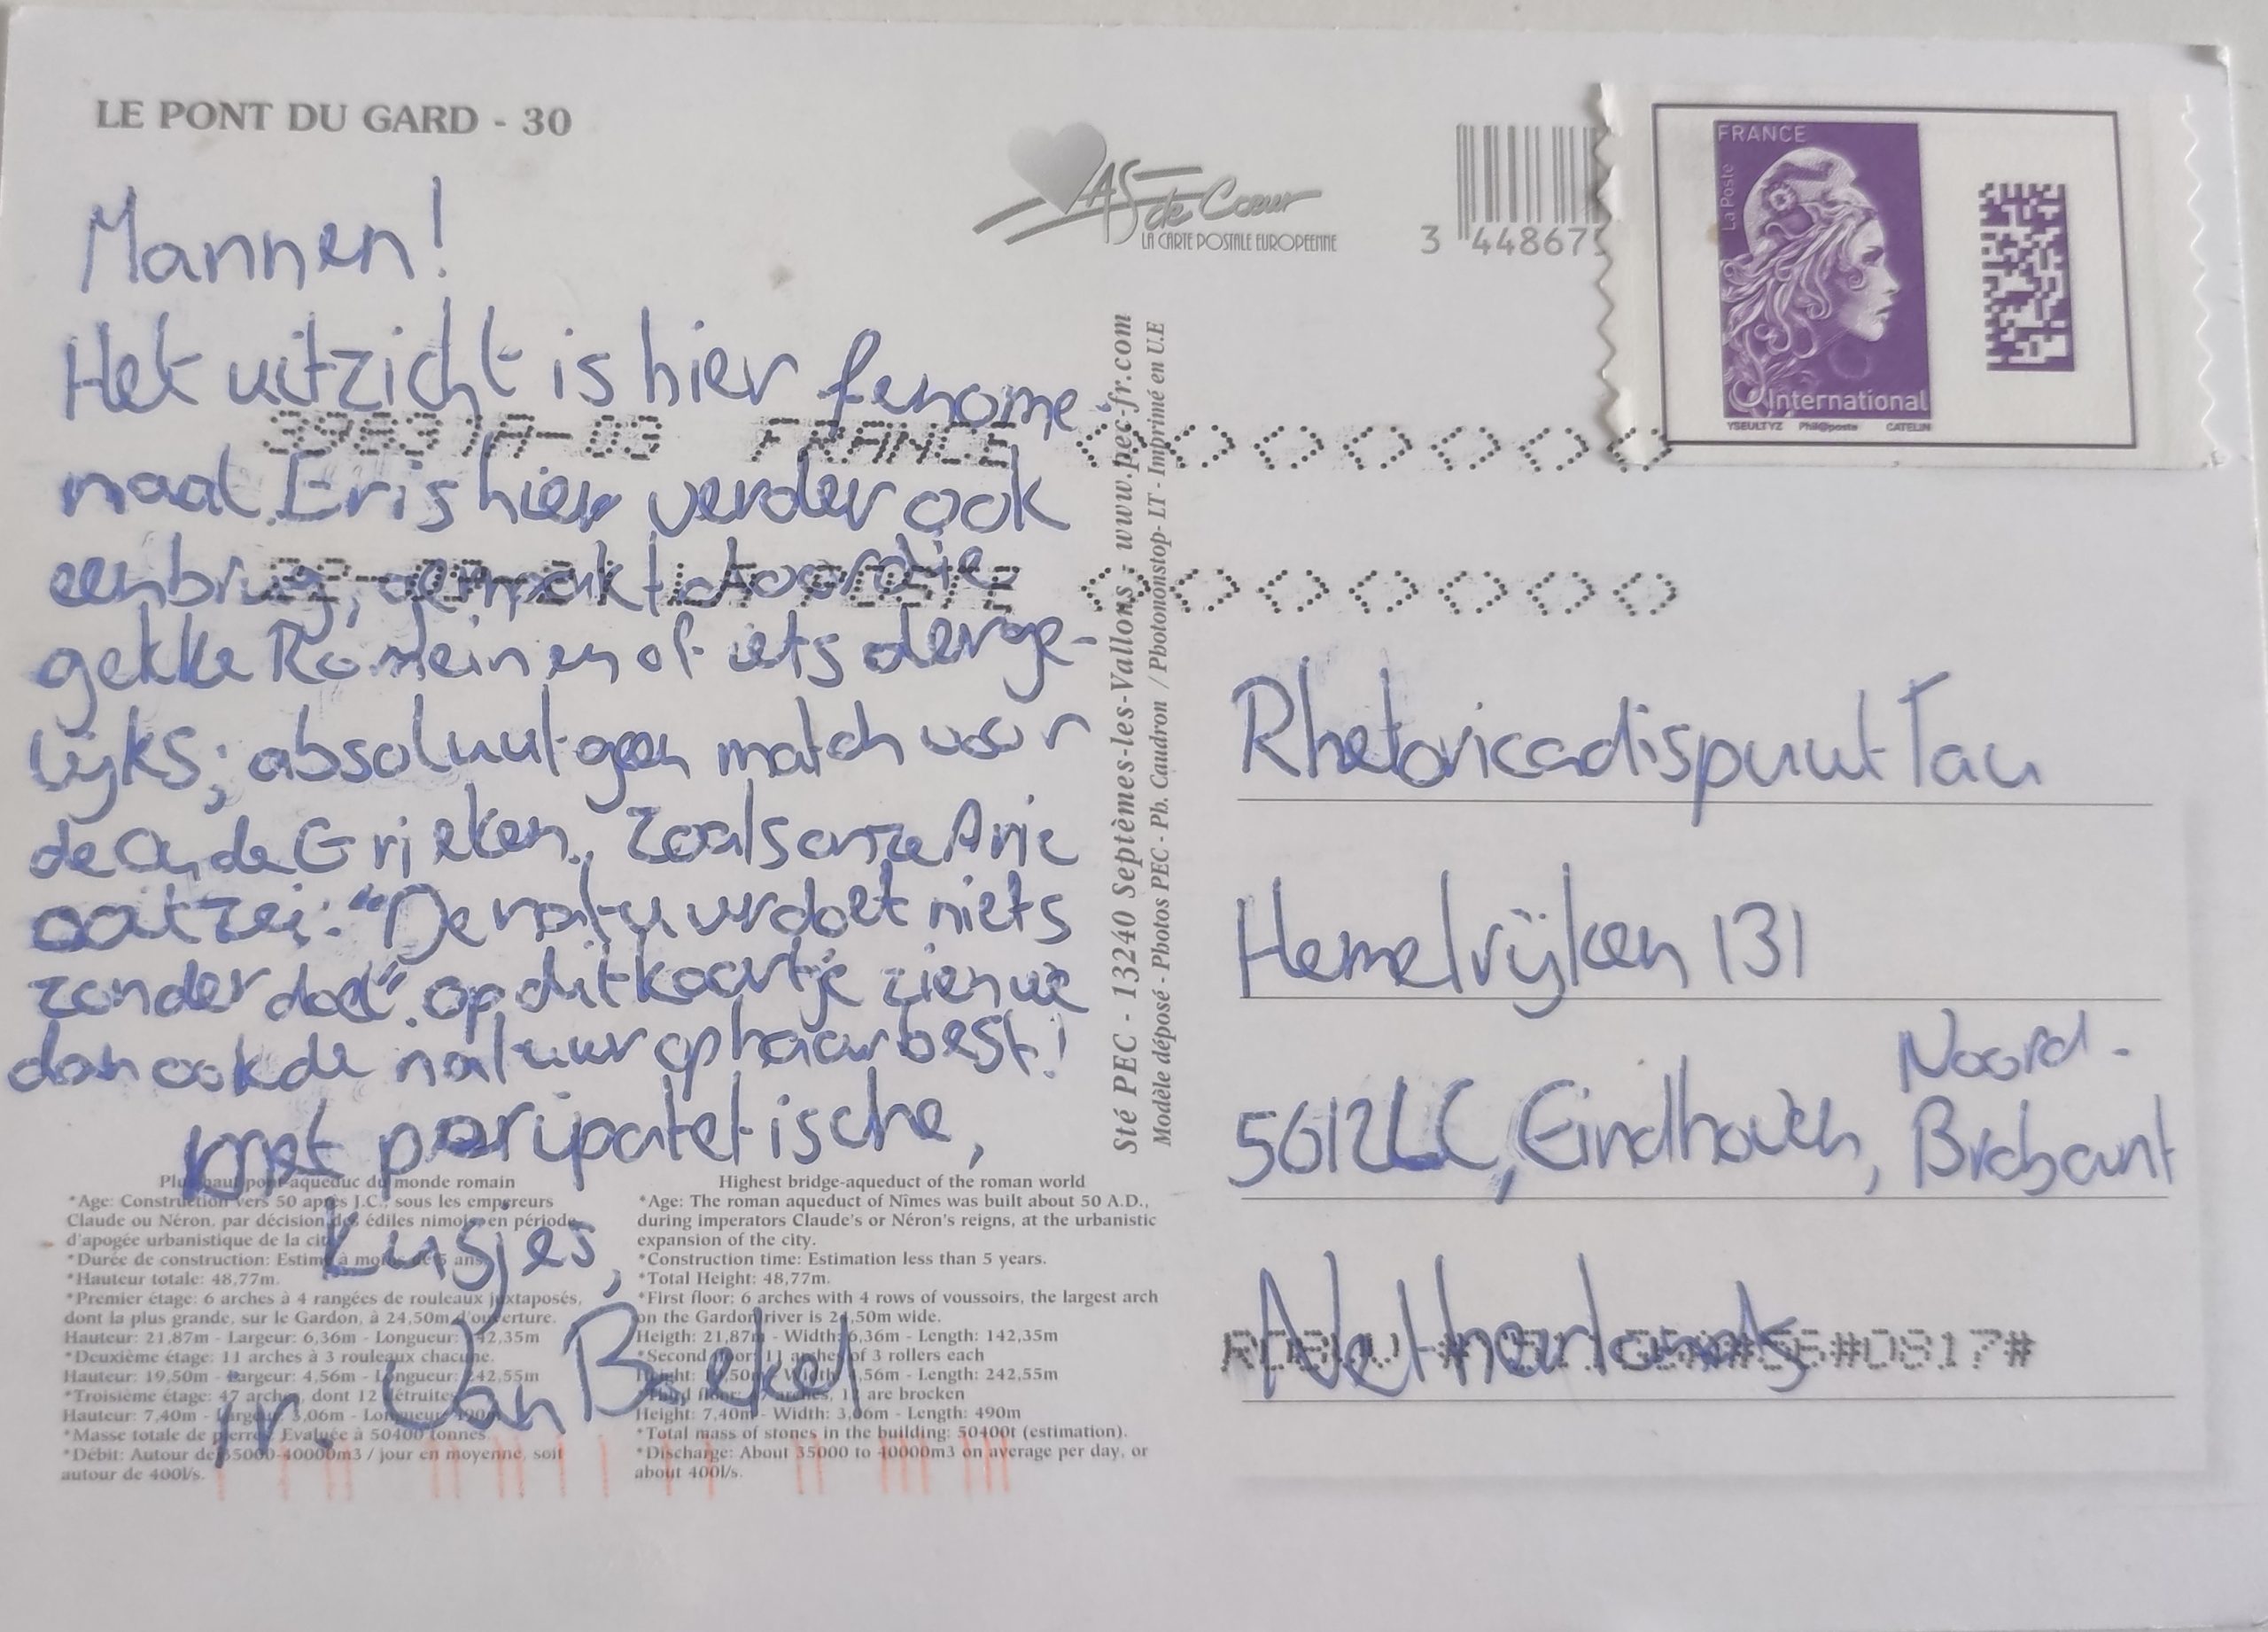 LE PONT DU GARD - 30
AS de Cœur
LA CARTE POSTALE EUROPEENNE
3 448675
FRANCE
La Poste
International
YSEULTYZ Phil@poste CATELIN
Mannen!
Het uitzicht is hier fenome-
naal. Er is hier verder ook
een brug, gemaakt door die
gekke Romeinen of iets derge-
lijks; absoluut geen match voor
de Oude Grieken. Zoals onze Arie
ooit zei: "De natuur doet niets
zonder doel". op dit kaartje zien we
dan ook de natuur op haar best!
Met peripatetische,
Kusjes,
ir. Van Boekel
39837A-03 FRANCE
LA POSTE
Sté PEC - 13240 Septèmes-les-Vallons - www.pec-fr.com
Modèle déposé - Photos PEC - Ph. Caudron / Photononstop- LT - Imprimé en U.E
Rhetoricadispuut Tau
Hemelrijken 131
5612LC, Eindhoven, Noord-
Brabant
Netherlands
#0817#
Plus haut pont-aqueduc du monde romain
*Age: Construction vers 50 après J.C., sous les empereurs
Claude ou Néron, par décision des édiles nimois en période
d'apogée urbanistique de la cité.
*Durée de construction: Estimé à moins de 5 ans.
*Hauteur totale: 48,77m.
*Premier étage: 6 arches à 4 rangées de rouleaux juxtaposés,
dont la plus grande, sur le Gardon, à 24,50m d'ouverture.
Hauteur: 21,87m - Largeur: 6,36m - Longueur: 142,35m
*Deuxième étage: 11 arches à 3 rouleaux chacune.
Hauteur: 19,50m - Largeur: 4,56m - Longueur: 242,55m
*Troisième étage: 47 arches, dont 12 détruites
Hauteur: 7,40m - Largeur: 3,06m - Longueur: 490m
*Masse totale de pierres: Evaluée à 50400 tonnes.
*Débit: Autour de 35000-40000m3 / jour en moyenne, soit
autour de 400l/s.
Highest bridge-aqueduct of the roman world
*Age: The roman aqueduct of Nîmes was built about 50 A.D.,
during imperators Claude's or Néron's reigns, at the urbanistic
expansion of the city.
*Construction time: Estimation less than 5 years.
*Total Height: 48,77m.
*First floor: 6 arches with 4 rows of voussoirs, the largest arch
on the Gardon river is 24,50m wide.
Heigth: 21,87m - Width: 6,36m - Length: 142,35m
*Second floor: 11 arches of 3 rollers each
Height: 19,50m - Width: 4,56m - Length: 242,55m
*Third floor: 47 arches, 12 are brocken
Height: 7,40m - Width: 3,06m - Length: 490m
*Total mass of stones in the building: 50400t (estimation).
*Discharge: About 35000 to 40000m3 on average per day, or
about 400l/s.